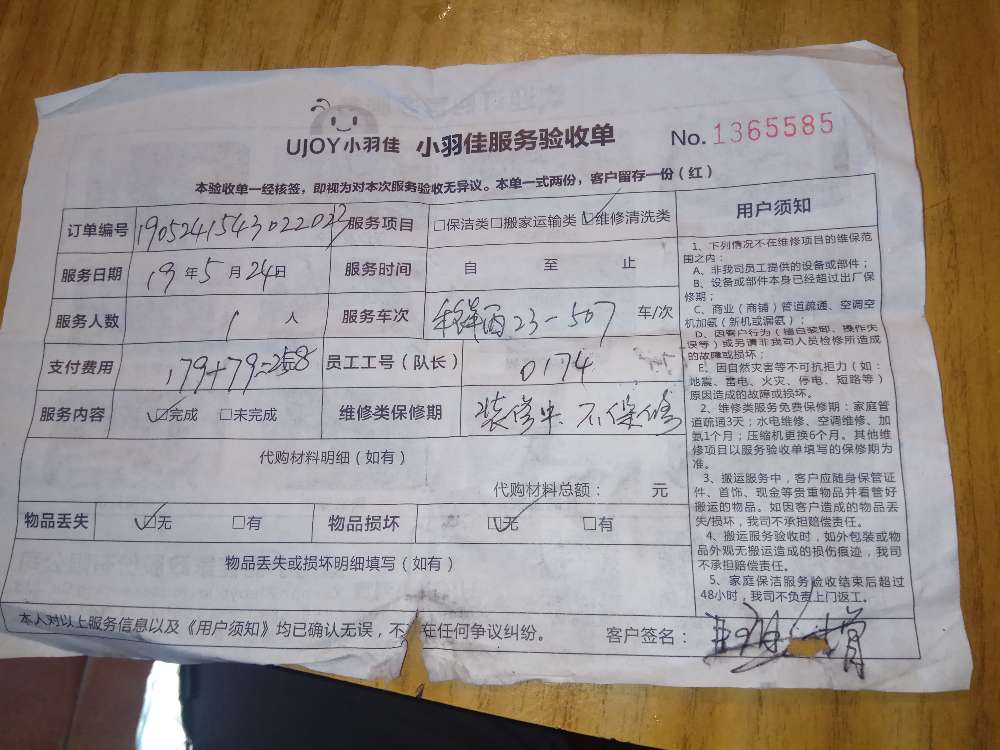 UJOY小羽佳 小羽佳服务验收单 No. 1365585
本验收单一经核签，即视为对本次服务验收无异议。本单一式两份，客户留存一份（红）
订单编号 1905241543022022 服务项目 □保洁类□搬家运输类☑维修清洗类
服务日期 19年5月24日 服务时间 自 至 止
服务人数 1 人 服务车次 23-507 车/次
支付费用 179+79=258 员工工号（队长） 0174
服务内容 ☑完成 □未完成 维修类保修期 不保修
代购材料明细（如有）
代购材料总额： 元
物品丢失 ☑无 □有 物品损坏 ☑无 □有
物品丢失或损坏明细填写（如有）
用户须知
1、下列情况不在维修项目的维保范
围之内：
A、非我司员工提供的设备或部件；
B、设备或部件本身已经超过出厂保
修期；
C、商业（商铺）管道疏通、空调空
机加氨（新机或漏氨）；
D、因客户行为（擅自装卸、操作失
误等）或另请非我司人员检修所造成
的故障或损坏；
E、因自然灾害等不可抗拒力（如：
地震、雷电、火灾、停电、短路等）
原因造成的故障或损坏。
2、维修类服务免费保修期：家庭管
道疏通3天；水电维修、空调维修、加
氨1个月；压缩机更换6个月。其他维
修项目以服务验收单填写的保修期为
准。
3、搬运服务中，客户应随身保管证
件、首饰、现金等贵重物品并看管好
搬运的物品。如因客户造成的物品丢
失/损坏，我司不承担赔偿责任。
4、搬运服务验收时，如外包装或物
品外观无搬运造成的损伤痕迹，我司
不承担赔偿责任。
5、家庭保洁服务验收结束后超过
48小时，我司不负责上门返工。
本人对以上服务信息以及《用户须知》均已确认无误，不 在任何争议纠纷。 客户签名：